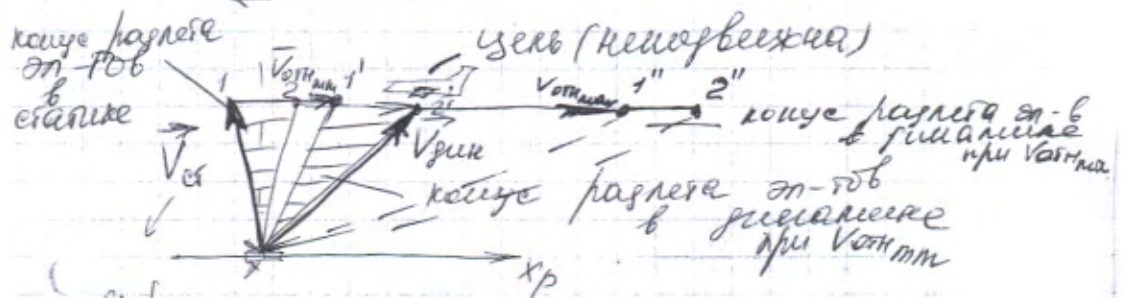 конус разлета
эл-тов
в
статике
1
2
V̅отн min
1'
2'
цель (неподвижна)
Vотн max
1"
2"
конус разлета эл-в
в динамике
при Vотн max
V̅ст
V̅дин
конус разлета эл-тов
в динамике
при Vотн min
xр